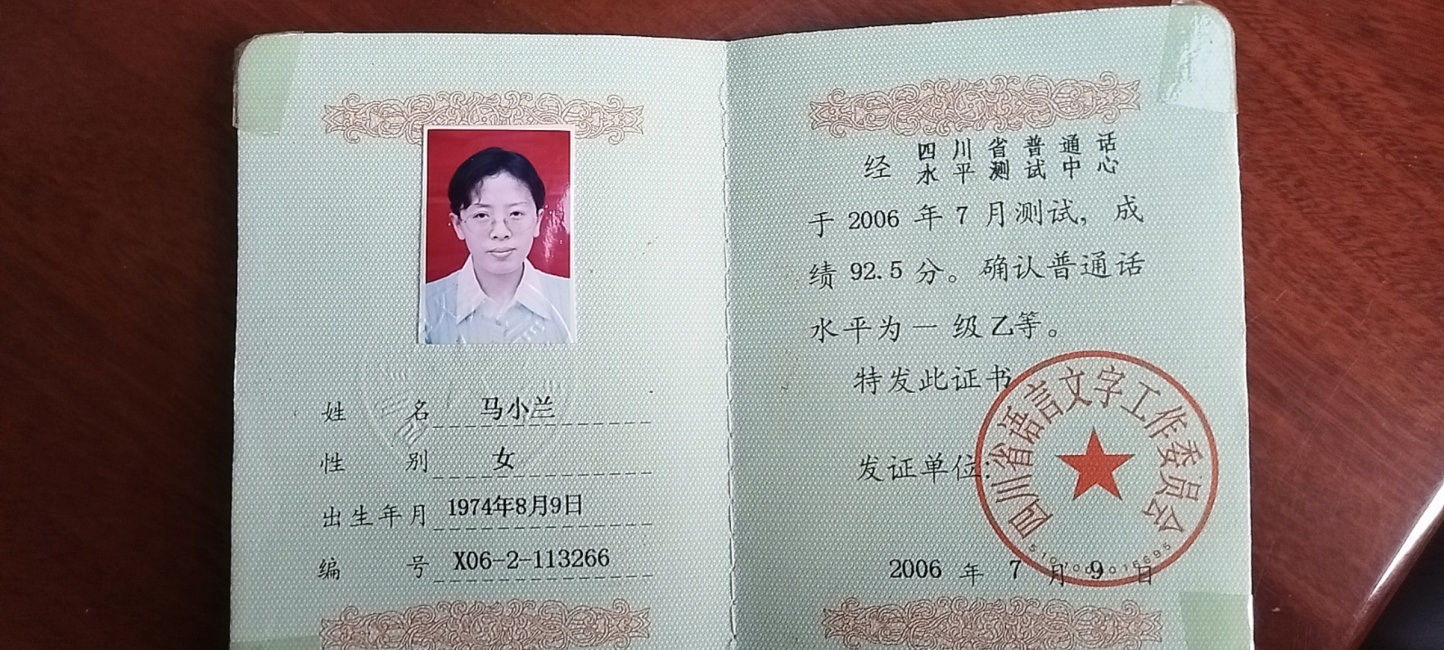 姓名 马小兰
性别 女
出生年月 1974年8月9日
编号 X06-2-113266
经 四川省普通话
水平测试中心
于 2006 年 7 月测试，成
绩 92.5 分。确认普通话
水平为一级乙等。
特发此证书
发证单位：
四川省语言文字工作委员会
2006 年 7 月 9 日